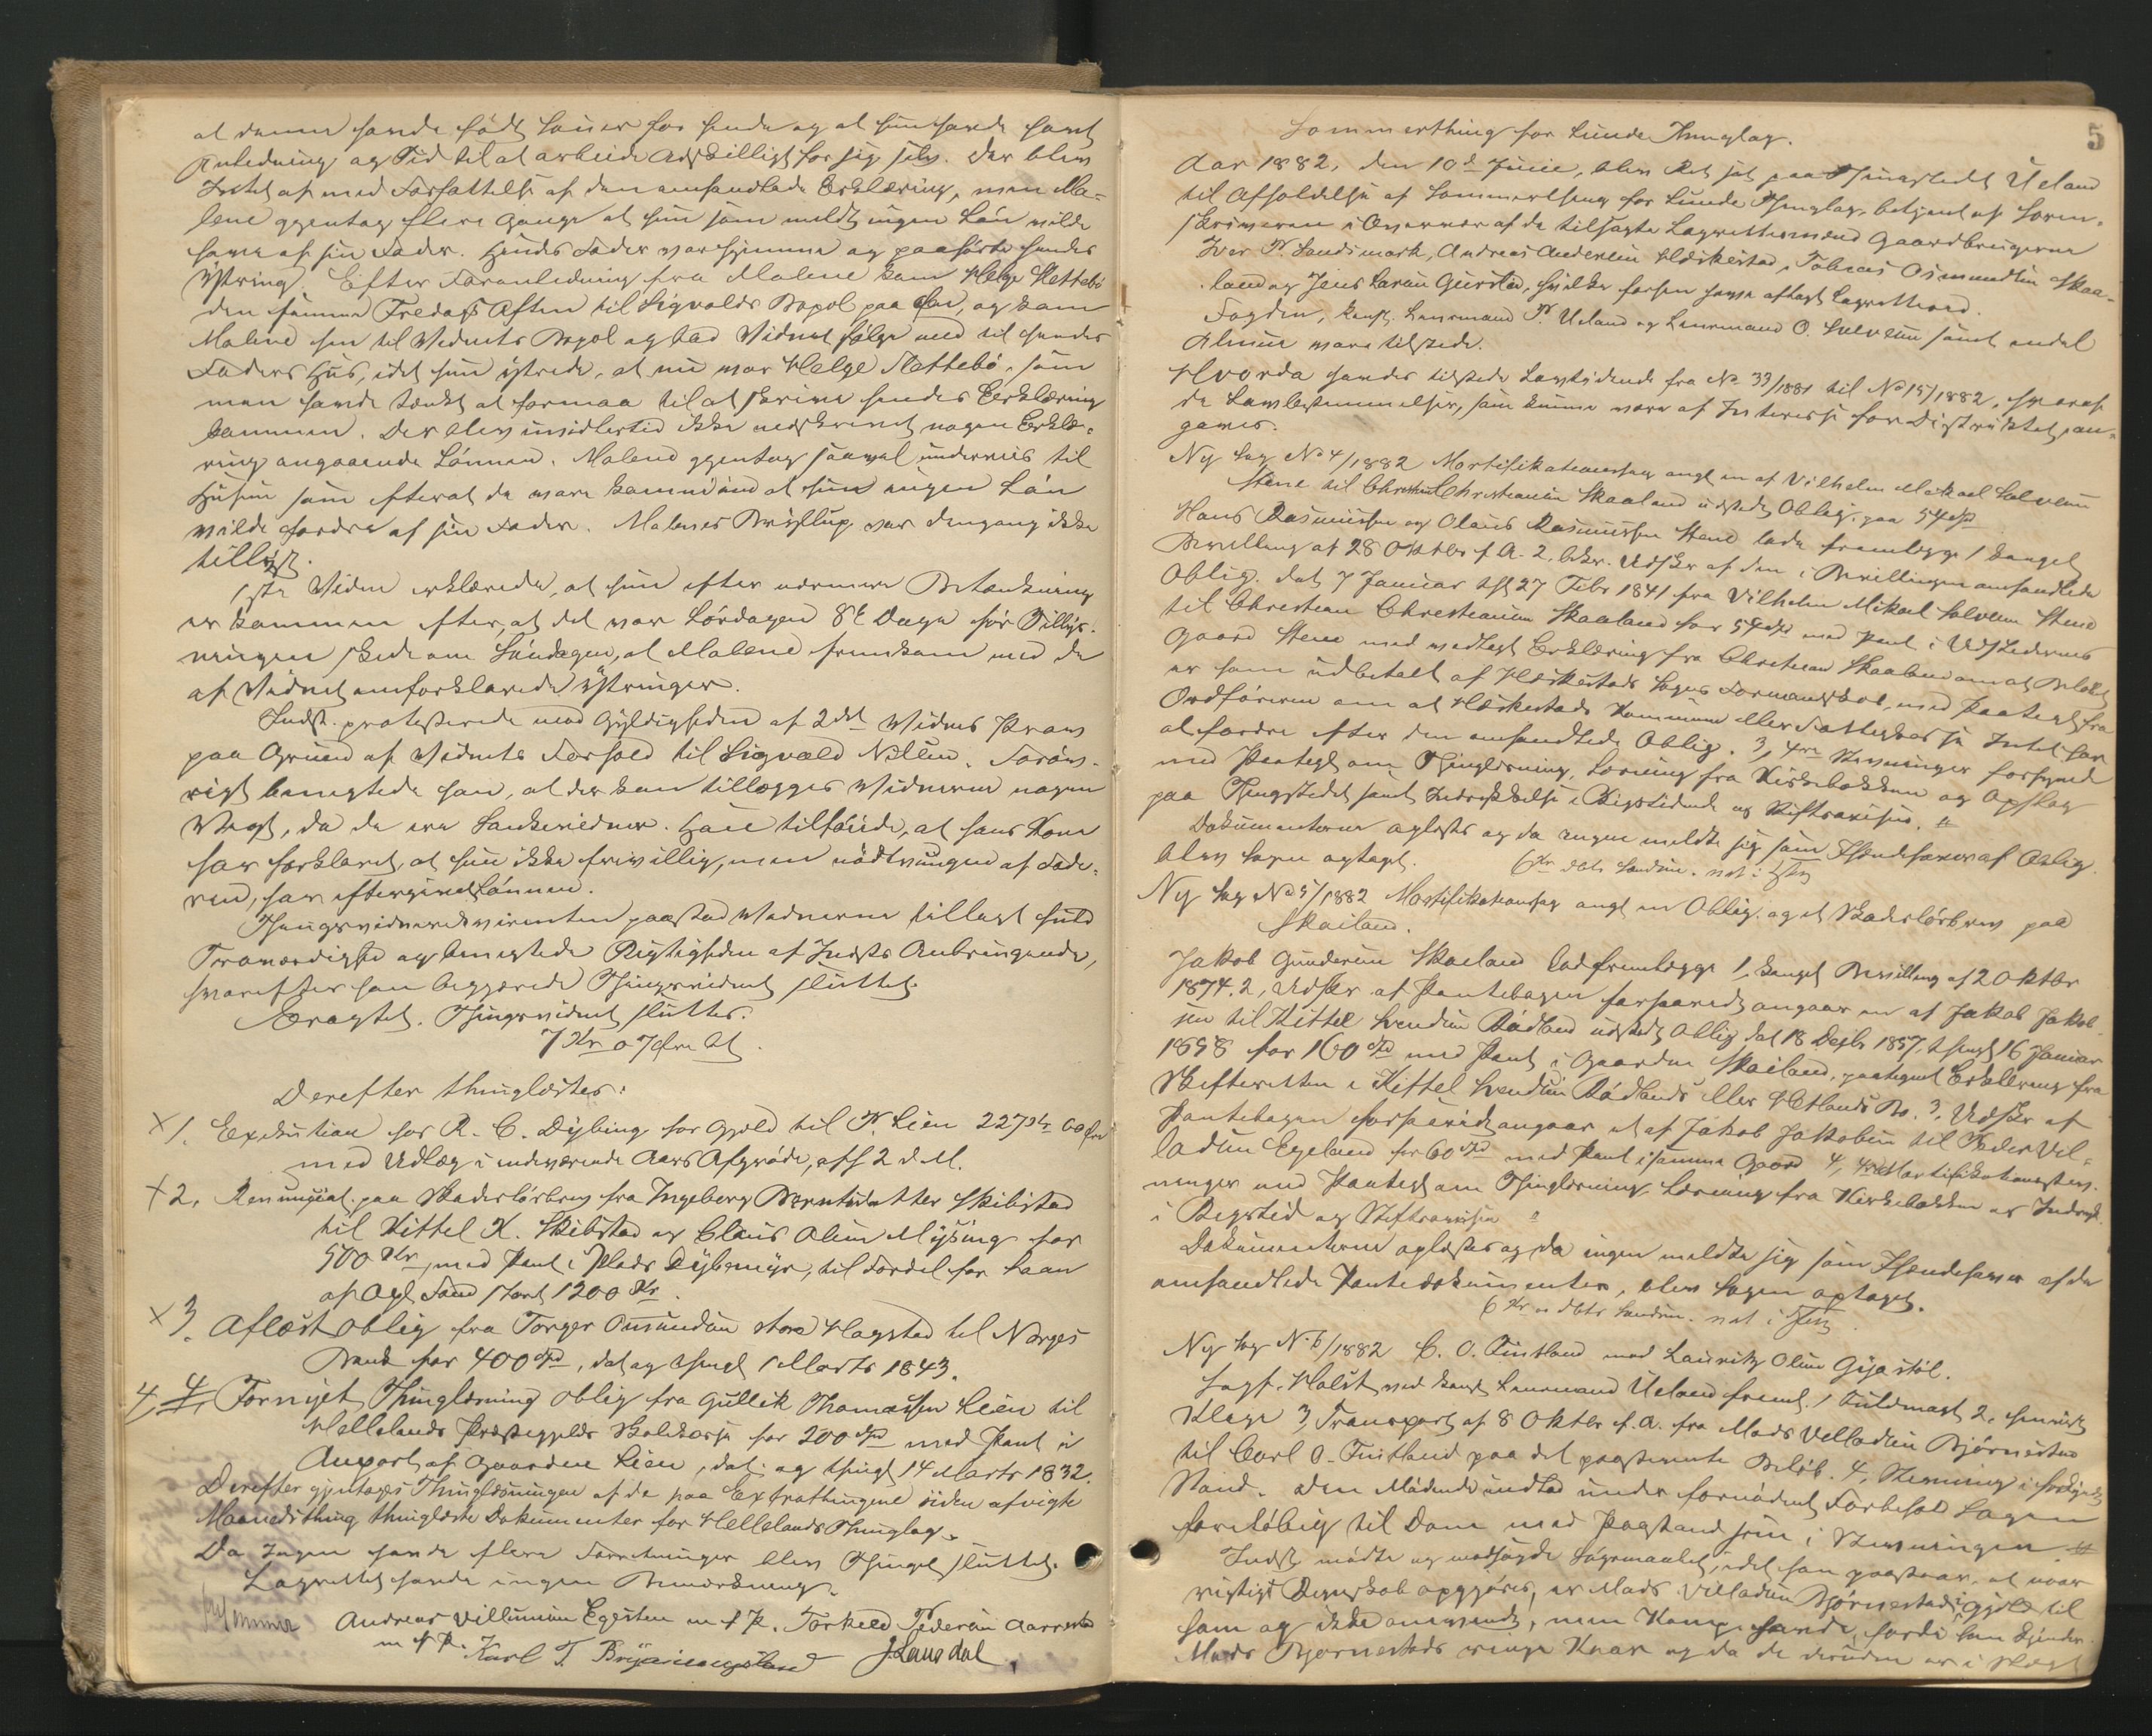 at denne havde født Sauer for hende og at hun havde havt
Anledning og Tid til at arbeide Adskilligt for sig selv. Der blev
Intet af med Forfattelse af den omhandlede Erklæring, men Ma-
lene gjentog flere Gange at hun som meldt ingen Løn vilde
have af sin Fader. Hendes Fader var hjemme og paahørte hendes
Yttring. Efter Foranledning fra Malene kom Helge Slettebø
den samme Fredags Aften til Sigvalds Bopæl paa , og kom
Malene hen til Vidnets Bopæl og bad Vidnet følge med til hendes
Faders Hus, idet hun ytrede, at nu var Helge Slettebø, som
man havde tænkt at formaa til at skrive hendes Erklæring
kommen. Der blev imidlertid ikke nedskrevet nogen Erklæ-
ring angaaende Lønnen. Malene gjentog saavel underveis til
Huset som efterat de vare kommen ind at hun ingen Løn
vilde fordre af sin Fader. Malenes Bryllup var dengang ikke
tillyst.
1ste Vidne erklærede, at hun efter nærmere Betænkning
er kommen efter, at det var Lørdagen 8te Dage før Tillys-
ningen skede om Søndagen, at Malene fremkom med de
af Vidnet omforklarede Yttringer.
Indst. protesterede mod Gyldigheden af 2det Vidnes Prov
paa Grund af Vidnets Forhold til Sigvald Nilsen. Forøv-
rigt benegtede han, at der kan tillægges Vidnerne nogen
Vægt, da de ere Tankevidner. Han tilføiede, at hans Kone
har forklaret, at hun ikke frivillig, men nødtvungen af Fade-
ren, har eftergivet Lønnen.
Thingsvidnerekvirenten paastod Vidnerne tillagt fuld
Troværdighed og benegtede Rigtigheden af Indsts Anbringende,
hvorefter han begjærede Thingsvidnet sluttet.
Eragtet. Thingsvidnet sluttes.
7 Kr 07 Øre bet.
Derefter thinglæstes:
× 1. Exekution hos R. C. Dybing for Gjeld til P. Lien 227 Kr 60 Øre
med Udlæg i indeværende Aars Afgrøde, afh 2 d. M.
× 2. Renunciat. paa Skadesløsbrev fra Ingeborg Berntsdatter Skibstad
til Kittel K. Skibstad og Claus Olsen Mysing for
500 Kr, med Pant i Plads Dybemyr, til Fordel for Laan
af Opl. Fond stort 1200 Kr.
× 3. Aflæst Oblig fra Torger Omundsen store Hagstad til Norges
Bank for 400 Spd, dat og thingl 1 Marts 1843.
4, 4, Fornyet Thinglæsning Oblig fra Gullik Thomassen Leien til
Hellelands Præstegjelds Skolekasse for 200 Spd med Pant i
Anpart af Gaarden Leien, dat. og thingl 14 Marts 1832.
Derefter gjentages Thinglæsningen af de paa Extrathingene siden afvigte
Maanedsthing thinglæste Dokumenter for Hellelands Thinglag.
Da Ingen havde flere Forretninger blev Thinget sluttet.
Lagrettet havde ingen Bemærkning.
Andreas Villumsen Egesten m. f. P. Torkeld Pedersen Aarrestad
m. f. P. Karl T. Bryningsland J. Lausdal
5
Sommerthing for Lunde Thinglag.
Aar 1882, den 10de Juni, blev Ret sat paa Thingstedet Ueland
til Afholdelse af Sommerthing for Lunde Thinglag, betjent af Soren-
skriveren i Overvær af de tilsagte Lagrettesmænd Gaardbrugerne
Iver P. Sandsmark, Andreas Andersen Hæskestad, Tobias Osmundsen Skaa-
land og Jens Larsen Gurstad, hvilke forhen have aflagt Lagretteed.
Fogden, konst. Lensmand P. Ueland og Lensmand O. Salvesen samt endel
Almue vare tilstede.
Hvorda havdes tilstede Lovtidende fra No 33/1881 til No 15/1882, hvoraf
de Lovbestemmelser, som kunne være af Interesse for Distriktet, an-
gaves.
Ny Sag No 4/1882 Mortifikationssag angl en af Vilhelm Mikael Salvesen
Stene til Christian Christiansen Skaaland udstedt Oblig. paa 54 Spd
Hans Rasmussen og Olaus Rasmussen Stene lode fremlægge 1 kongel
Bevilling af 28 Oktbr f. A. 2, bekr. Udskr af den i Bevillingen omhandlede
Oblig. dat 7 Januar thl 27 Febr 1841 fra Vilhelm Mikael Salvesen Stene
til Christian Christiansen Skaaland for 54 Spd med Pant i Udstederens
Gaard Stene med vedlagt Erklæring fra Christian Skaaland om at Beløbet
er ham udbetalt af Hæskestads Sogns Formandskab, med Paategn. fra
Ordføreren om at Hæskestads Kommune eller Fattigkasse Intet har
at fordre efter den omhandlede Oblig. 3, 4re Stevninger forsynede
med Paategn om Thinglæsning, Læsning fra Kirkebakken og Opslag
paa Thingstedet samt Indrykkelse i Rigstidende og Stiftsavisen. "
Dokumenterne oplæstes og da ingen meldte sig som Ihændehaver af Oblig.
blev Sagen optaget.
Ny Sag No 5/1882 Mortifikationssag angl en Oblig. og et Skadesløsbrev paa
Skailand.
Jakob Gundersen Skailand lod fremlægge 1, kongel Bevilling af 2 Oktbr
1874. 2, Udskr af Pantebogen forsaavidt angaar en af Jakob Jakob-
sen til Kittel Svendsen Rødland udstedt Oblig dat 18 Dezbr 1857, thingl 16 Januar
1858 for 160 Spd med Pant i Gaarden Skailand, paategnet Erklæring fra
Skifteretten i Kittel Svendsen Rødlands eller Hetlands Bo. 3, Udskr af
Pantebogen forsaavidt angaar et af Jakob Jakobsen til Peder Vil-
ladsen Egeland for 60 Spd med Pant i samme Gaard 4, 4re Mortifikationsstev-
ninger med Paategn om Thinglæsning, Læsning fra Kirkebakken og Indryk.
i Rigstid og Stiftsavisen "
Dokumenterne oplæstes og da ingen meldte sig som Ihændehaver af de
omhandlede Pantedokumenter, blev Sagen optaget.
Ny Sag No 6/1882 C. O. Tuntland mod Lauritz Olsen Gyastøl.
Sagf. Holst ved konst Lensmand Ueland freml. 1 Fuldmagt 2, henvist
Klage 3, Transport af 8 Oktbr f. A. fra Mads Velladsen Bjørnestad
til Carl O. Tuntland paa det paastevnte Beløb. 4, Stevning i forkyndt
Stand. Den Mødende indlod under fornødent Forbehold Sagen
foreløbig til Dom med Paastand som i Stevningen "
Indst mødte og modsagde Søgsmaalet, idet han paastaar, at naar
rigtigt Regnskab opgjøres, er Mads Velladsen Bjørnestad i Gjeld til
ham og ikke omvendt, men Komp. havde, fordi han kjender
Mads Bjørnestads ringe Kaar og da de desuden er i Slægt